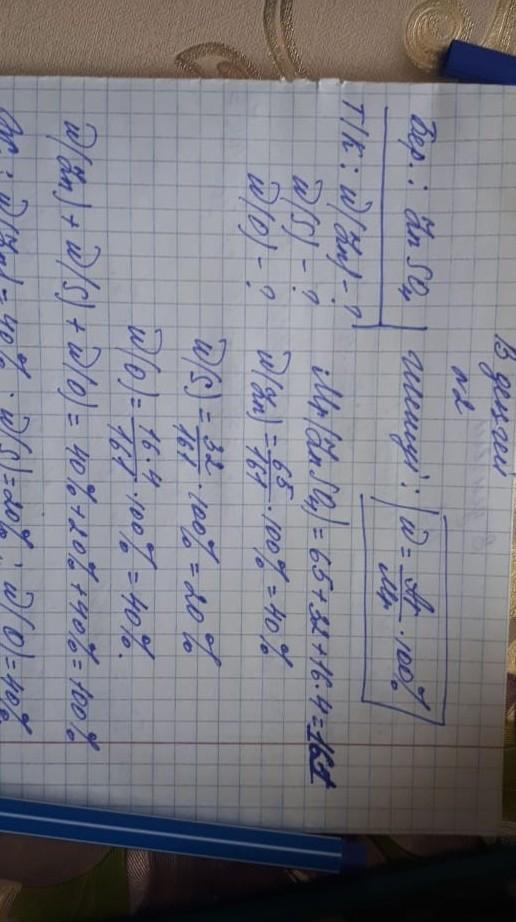 В деңгей
№2
Бер.: ZnSO₄
Т/к: ω(Zn) - ?
ω(S) - ?
ω(O) - ?
Шешуі: ω = Ar/Mr · 100%
Mr(ZnSO₄) = 65 + 32 + 16·4 = 161
ω(Zn) = 65/161 · 100% = 40%
ω(S) = 32/161 · 100% = 20%
ω(O) = 16·4/161 · 100% = 40%.
ω(Zn) + ω(S) + ω(O) = 40% + 20% + 40% = 100%
ω(Zn) = 40%; ω(S) = 20%; ω(O) = 40%